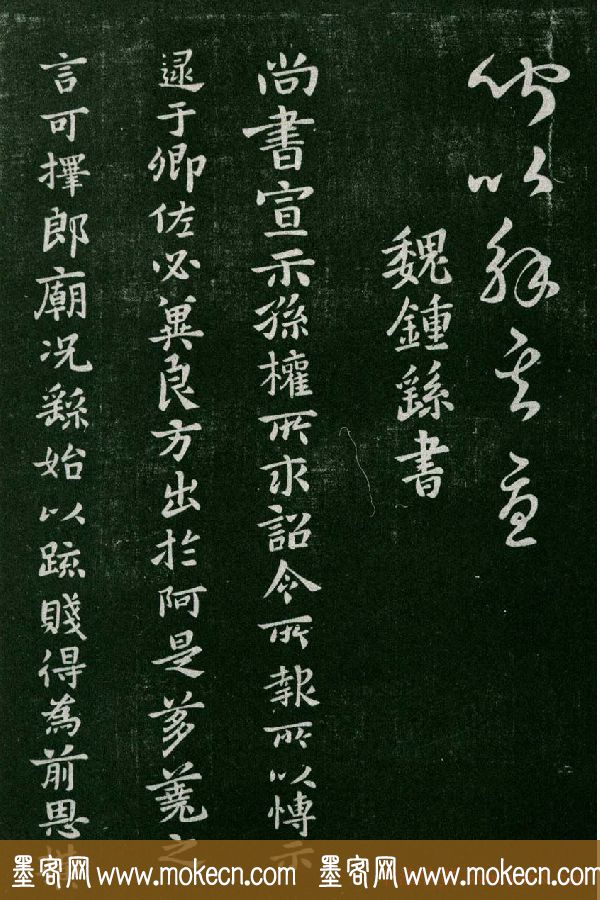 以
魏鍾繇書
尚書宣示孫權所求詔令所報所以博示
逮于卿佐必冀良方出於阿是芻蕘之
言可擇郎廟況繇始以疏賤得為前恩
墨客网 www.mokecn.com 墨客网 www.mokecn.com